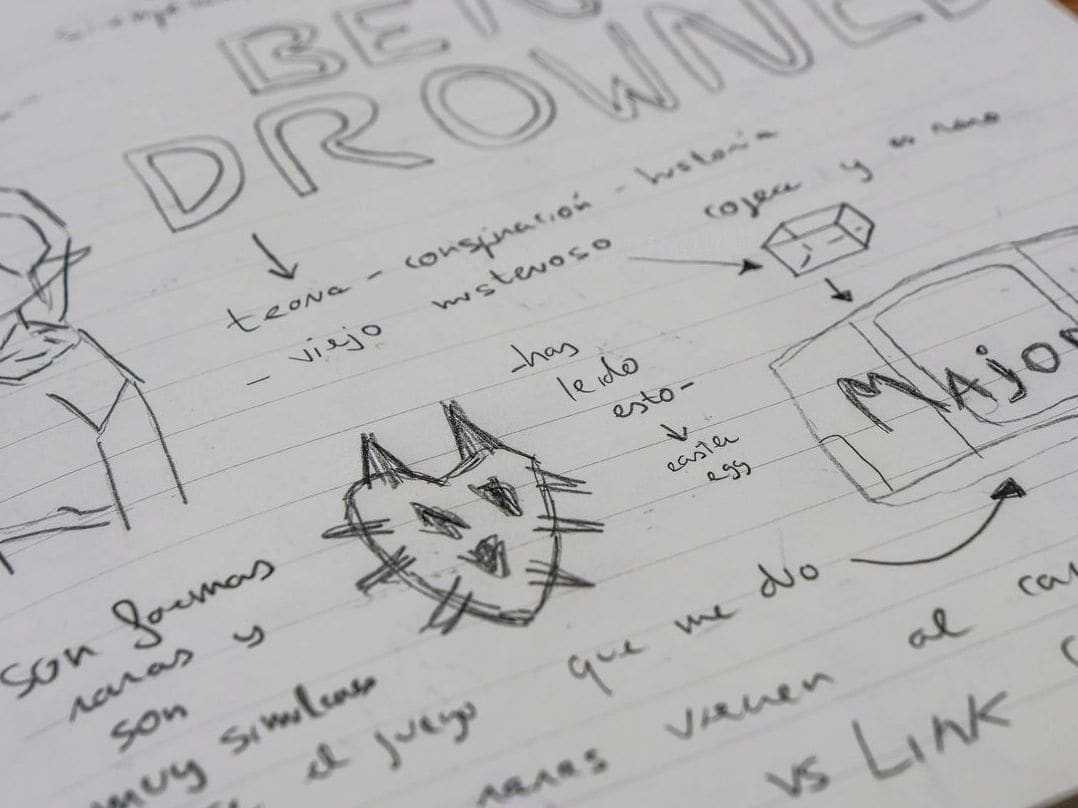 BEN
DROWNED
teoria - conspiración - historia
- viejo misterioso
cogea y es raro
-has
leido
esto-
easter
egg
MAjor
son formas
raras y
son
muy similares
el juego
que me dio
raras vienen al
vs LINK